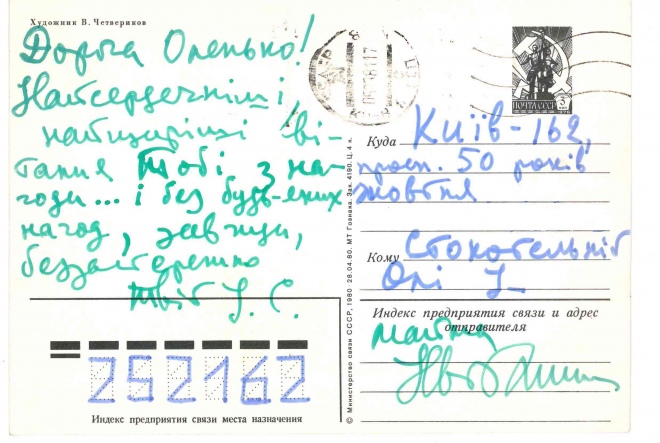 Художник В. Четвериков
Дорога Оленько!
Найсердечніші,
найщиріші ві-
тання Тобі з на-
годи... і без будь-яких
нагод, завжди,
беззастережно
Твій
ПОЧТА СССР
Куда Київ-162,
просп. 50 років
жовтня
Кому
Олі
Индекс предприятия связи и адрес
отправителя
252162
Индекс предприятия связи места назначения
© Министерство связи СССР, 1980 28.04.80. МТ Гознака. Зак. 4190. Ц. 4 к.